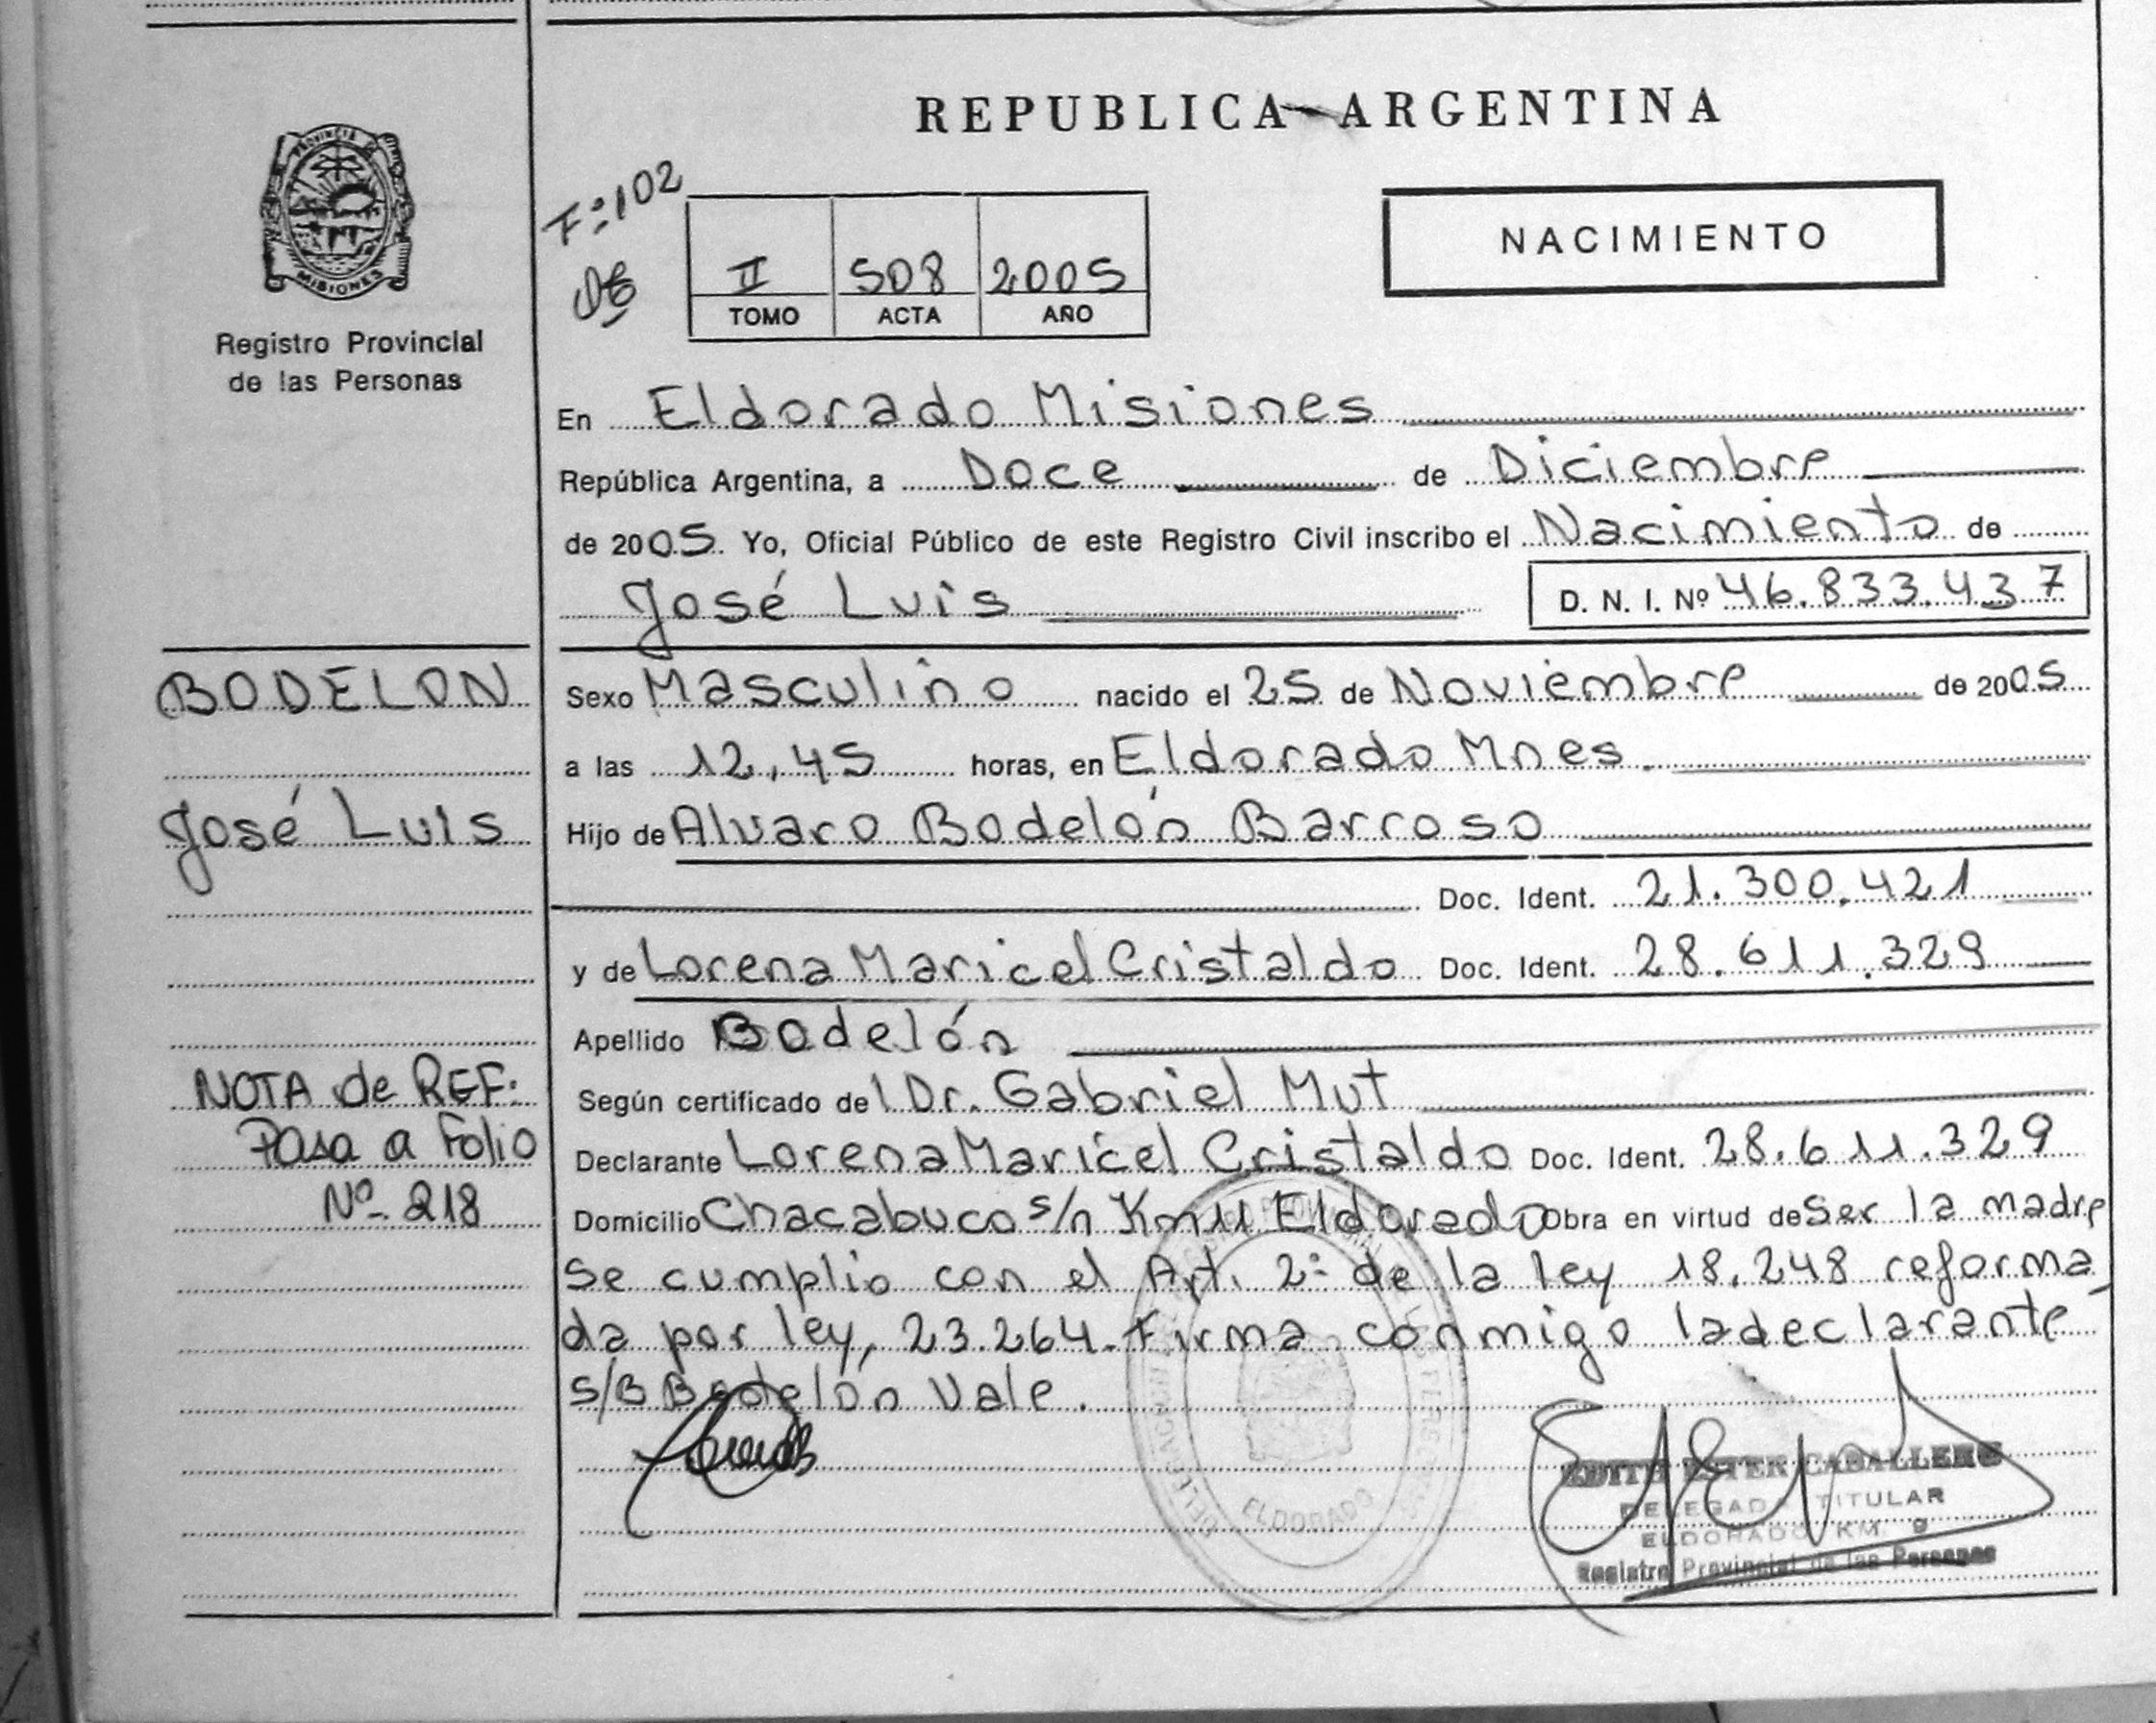 REPUBLICA ARGENTINA
PROVINCIA DE MISIONES
Registro Provincial
de las Personas
Fº 102
II 508 2005
TOMO ACTA AÑO
NACIMIENTO
En Eldorado Misiones
República Argentina, a Doce de Diciembre
de 2005. Yo, Oficial Público de este Registro Civil inscribo el Nacimiento de
José Luis D. N. I. Nº 46.833.437
BODELON
José Luis
NOTA de REF:
Pasa a Folio
Nº 218
Sexo Masculino nacido el 25 de Noviembre de 2005
a las 12,45 horas, en Eldorado Mnes.
Hijo de Alvaro Bodelón Barroso
Doc. Ident. 21.300.421
y de Lorena Maricel Cristaldo Doc. Ident. 28.611.329
Apellido Bodelón
Según certificado del Dr. Gabriel Mut
Declarante Lorena Maricel Cristaldo Doc. Ident. 28.611.329
Domicilio Chacabuco s/n Km 11 Eldorado Obra en virtud de Ser la madre
Se cumplio con el Art. 2º de la ley 18.248 reforma
da por ley, 23.264. Firma conmigo la declarante
S/B Bodelón Vale.
ELDORADO
EDITH ESTER CABALLERO
DELEGADA TITULAR
ELDORADO KM. 9
Registro Provincial de las Personas